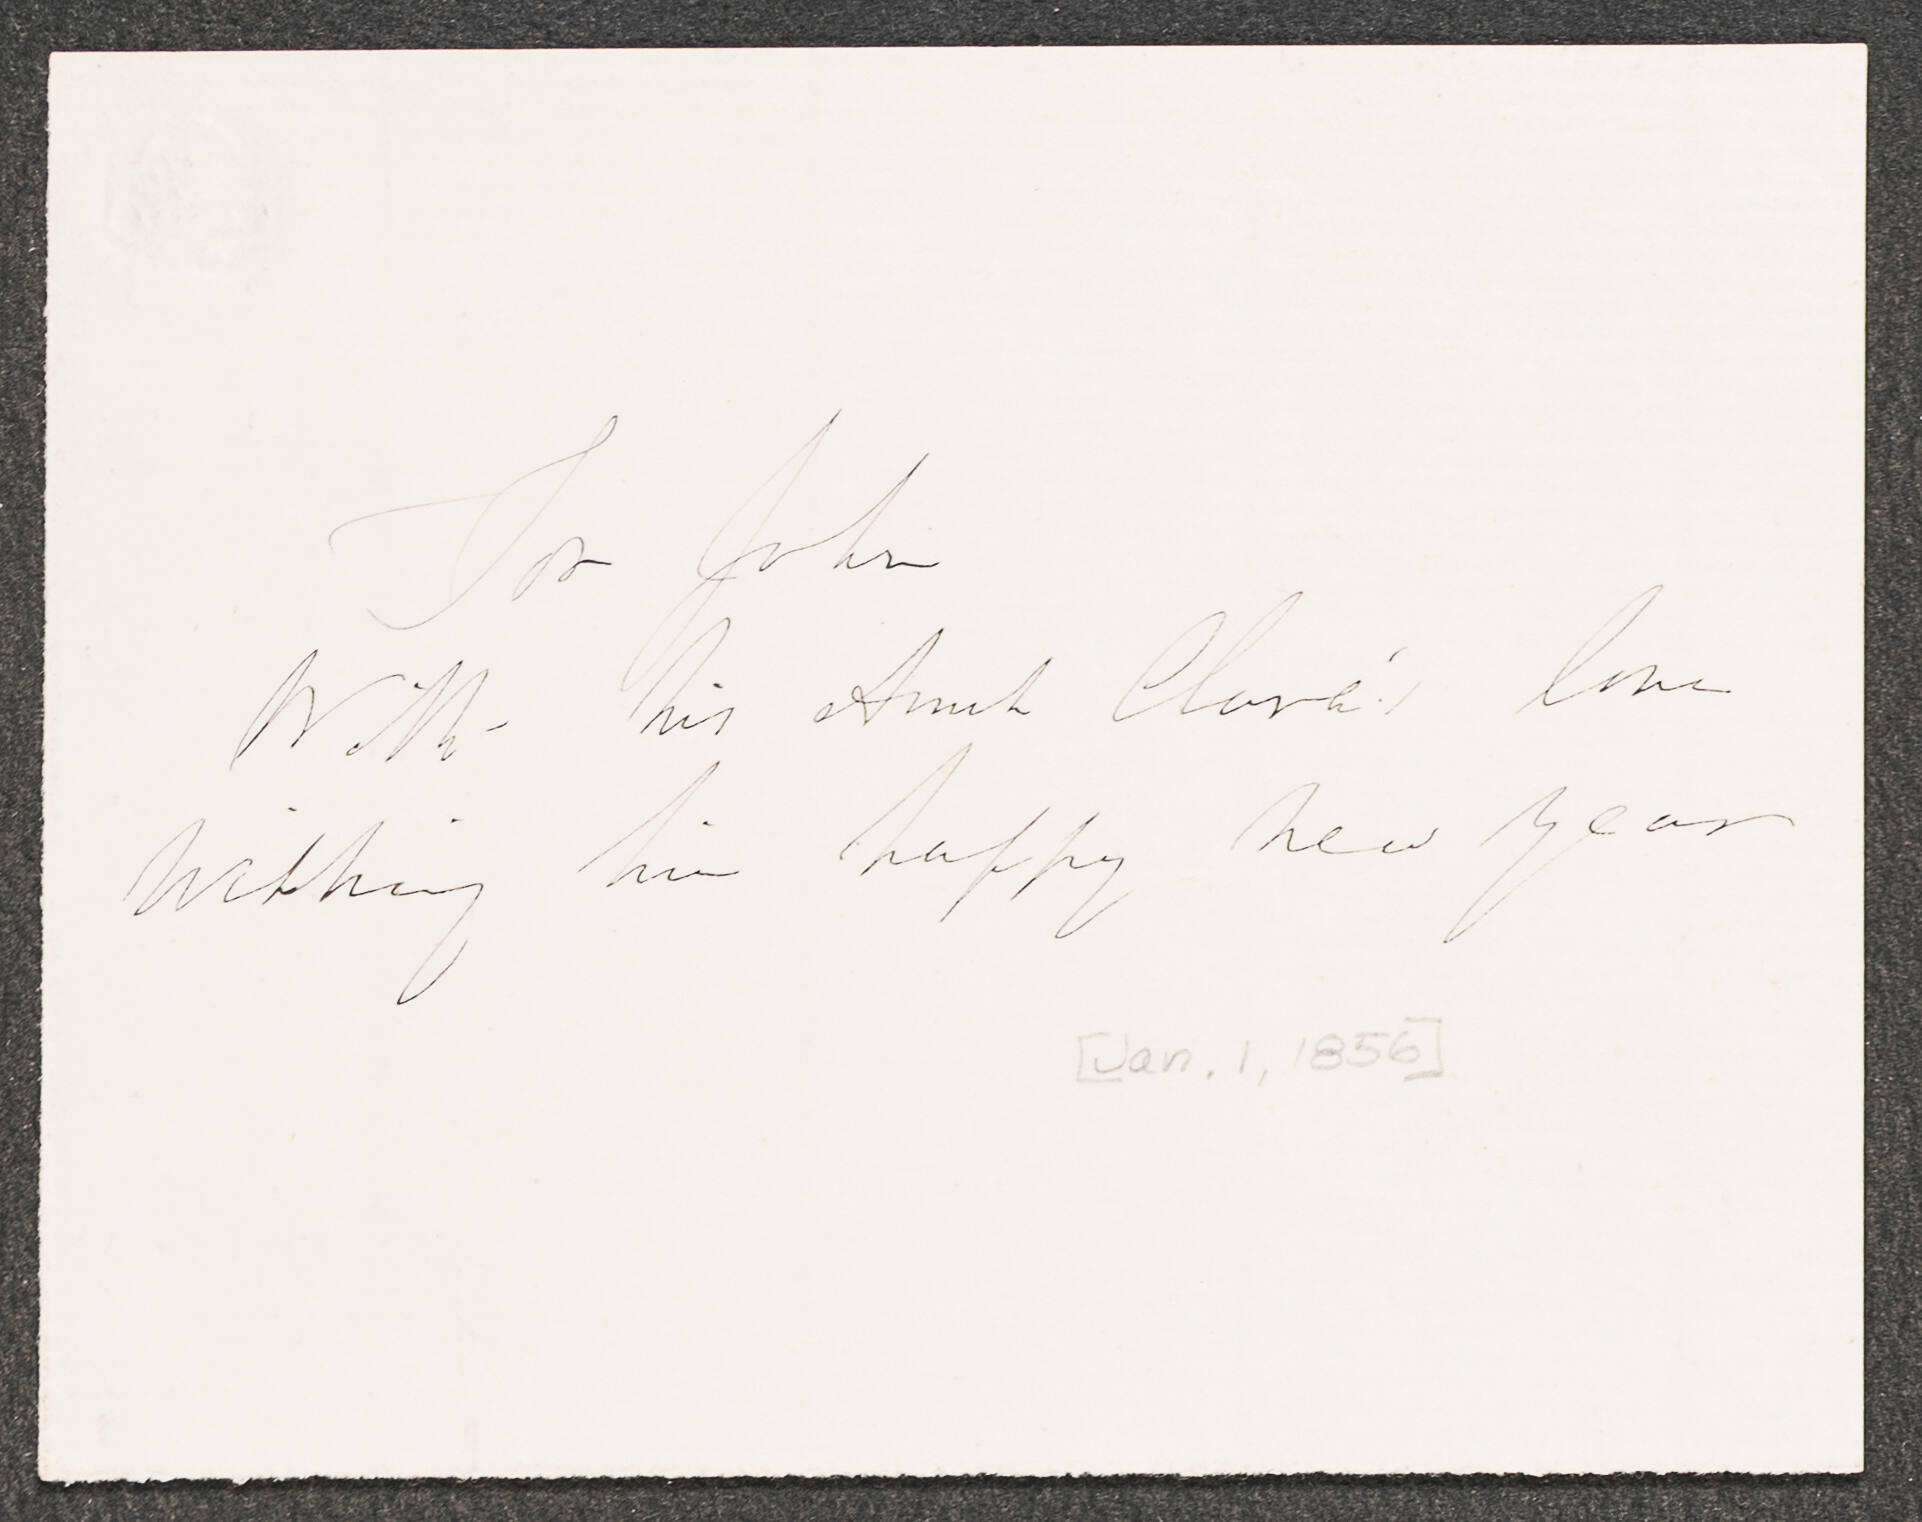 For John
With his Aunt Clara's love
Wishing him happy new year
[Jan. 1, 1856]